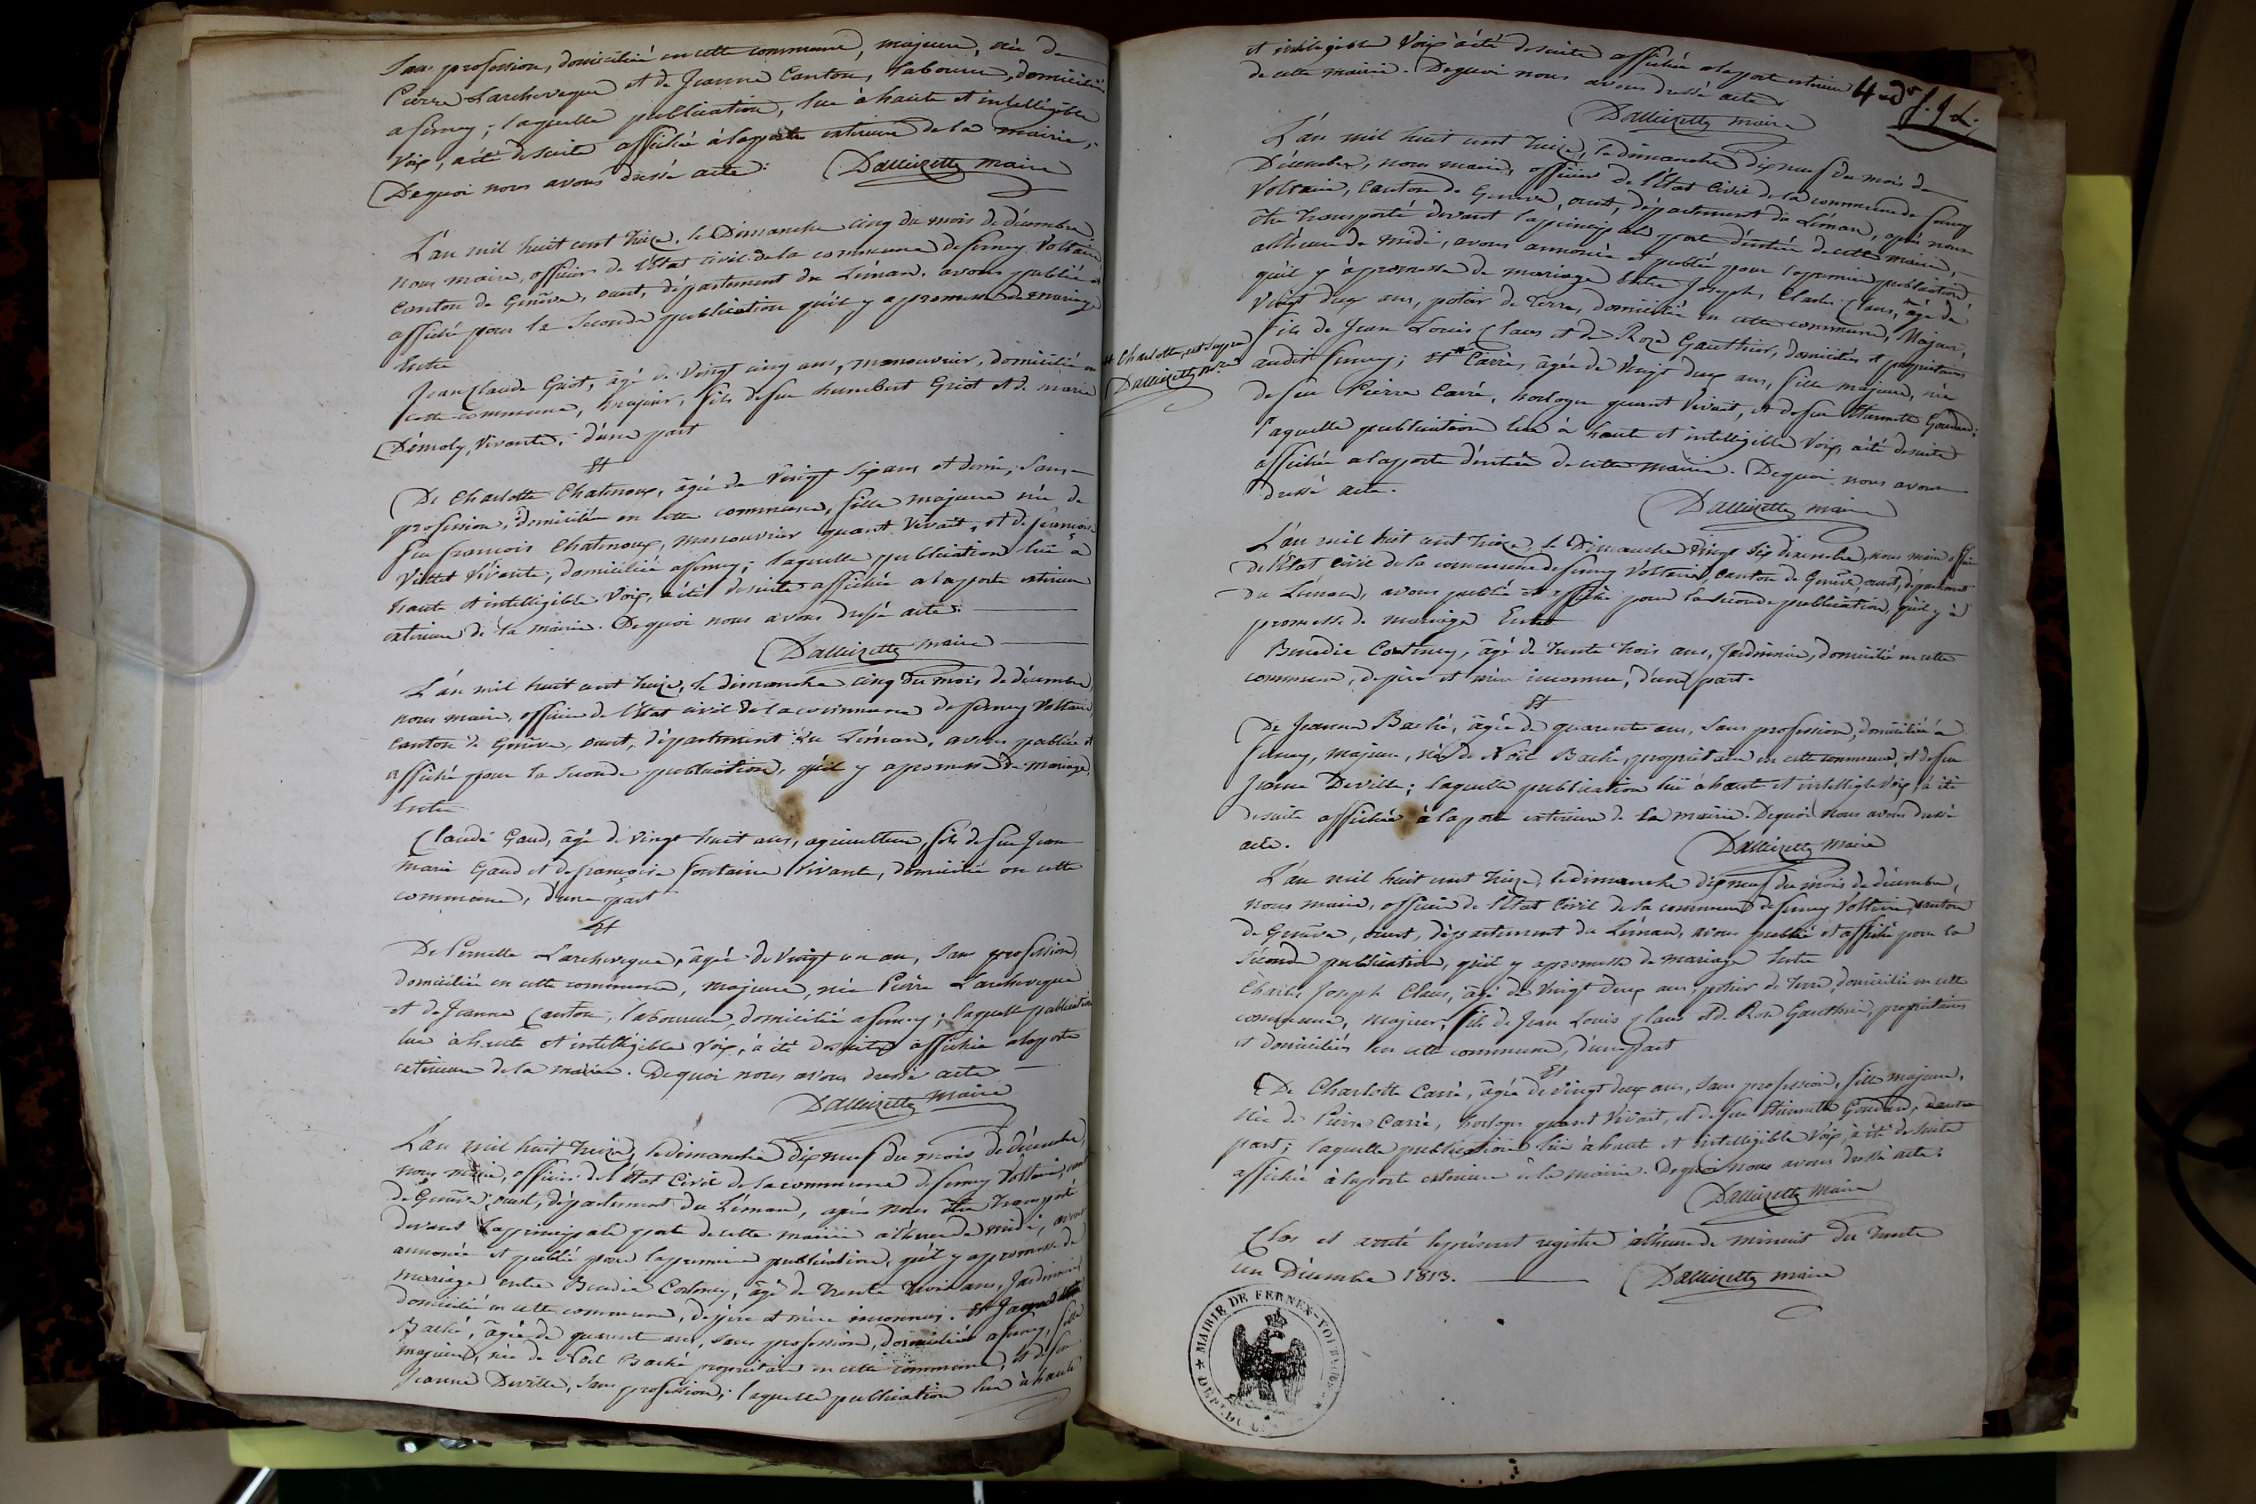 Sans profession, domiciliée en cette commune, majeure, née de
Pierre Larcheveque et de Jeanne Canton, laboureur, domiciliés
a ferney; laquelle publication, lue à haute et intelligible
Voix, a été desuite affichée à la porte extérieure de la mairie,
De quoi nous avons dressé acte. Dallizette maire
L'an mil huit cent treize, le Dimanche cinq du mois de décembre,
nous maire, officier de l'Etat civil de la commune de ferney Voltaire
canton de Genêve, ouest, département du Léman, avons publié et
affiché pour la seconde publication qu'il y a promesse de mariage
Entre
Jean Claude Griot, âgé de vingt cinq ans, manouvrier, domicilié en
cette commune, majeur, fils de feu humbert Griot et de marie
Démoly, Vivante, d'une part
Et
De Charlotte Chatenoux, âgée de Vingt six ans et demi, Sans
profession, domiciliée en cette commune, fille majeure née de
feu francois Chatenoux, manouvrier quant vivait, et de françoise
Vittet Vivante, domiciliée a ferney; laquelle publication lue à
haute et intelligible Voix, a été desuite affichée a la porte extérieure
extérieure de la mairie. De quoi nous avons dressé acte.
Dallizette maire
L'an mil huit cent treize, le dimanche cinq du mois de décembre,
nous maire, officier de l'état civil de la commune de ferney Voltaire,
canton de Genêve, ouest, département du Léman, avons publié et
affiché pour la seconde publication, qu'il y a promesse de mariage,
Entre
Claude Gaud, âgé de vingt huit ans, agriculteur, fils de feu Jean
marie Gaud et de françoise fontaine Vivante, domicilié en cette
commune, d'une part
Et
De Pernette Larcheveque, âgée de Vingt un an, Sans profession,
domiciliée en cette commune, majeure, née Pierre Larcheveque
et de Jeanne Canton, laboureur, domicilié a ferney; laquelle publication
lue à haute et intelligible Voix, a été desuite affichée a la porte
extérieure de la mairie. De quoi nous avons dressé acte
Dallizette maire
L'an mil huit treize, le dimanche dix neuf du mois de décembre,
nous maire, officier de l'état Civil de la commune de ferney Voltaire, canton
de Genêve, ouest, département du Léman, après nous être transporté
devant la principale porte de cette mairie à l'heure de midi, avons
annoncé et publié pour la premiere publication, qu'il y a promesse de
mariage entre Benedic Costeney, âgé de trente trois ans, Jardinier,
domicilié en cette commune, de père et mère inconnus. Et Jeanne
Baché, âgée de quarente ans, sans profession, domiciliée a ferney, fille
majeure, née de Noël Baché propriétaire en cette commune, et de feu
Jeanne Deville, Sans profession; laquelle publication lue à haute
et intelligible Voix a été desuite affichée a la porte extérieure
de cette mairie. De quoi nous avons dressé acte.
Dallizette maire
L'an mil huit cent treize, le dimanche dix neuf du mois de
Décembre, nous maire, officier de l'état Civil de la commune de ferney
Voltaire, canton de Genêve, ouest, département du Léman, après nous
être transporté devant la principale porte d'entrée de cette mairie,
a l'heure de midi, avons annoncé et publié pour la premiere publication,
qu'il y a promesse de mariage Entre Joseph, Charles Claus, âgé de
Vingt deux ans, potier de terre, domicilié en cette commune, Majeur,
fils de Jean Louis Claus et de Roze Gauthier, domiciliés et propriétaires
audit ferney; Et # Carré, âgée de Vingt deux ans, fille majeure, née
# Charlotte,
Dallizette
de feu Pierre Carré, horloger quant Vivait, et de feu Etiennette Goudard;
laquelle publication lue à haute et intelligible Voix, a été desuite
affichée a la porte d'entrée de cette mairie. De quoi nous avons
dressé acte.
Dallizette maire
L'an mil huit cent treize, le Dimanche vingt six décembre, nous maire officier
de l'état civil de la commune de ferney Voltaire, canton de Genêve, ouest, département
du Léman, avons publié et affiché pour la seconde publication, qu'il y a
promesse de mariage Entre
Benedic Costeney, âgé de trente trois ans, Jardinier, domicilié en cette
commune, de père et mère inconnus, d'une part.
Et
De Jeanne Baché, âgée de quarente ans, Sans profession, domiciliée à
ferney, majeure, née de Noël Baché, propriétaire en cette commune, et de feu
Jeanne Deville; laquelle publication lue à haute et intelligible voix, a été
desuite affichée à la porte extérieure de la mairie. De quoi nous avons dressé
acte.
Dallizette maire
L'an mil huit cent treize, le dimanche dix neuf du mois de décembre,
nous maire, officier de l'état civil de la commune de ferney Voltaire, canton
de Genêve, ouest, département du Léman, avons publié et affiché pour la
seconde publication, qu'il y a promesse de mariage Entre
Charles Joseph Claus, âgé de vingt deux ans, potier de terre, domicilié en cette
commune, majeur, fils de Jean Louis Claus et de Roze Gauthier, propriétaires
et domiciliés en cette commune, d'une part
Et
De Charlotte Carré, âgée de vingt deux ans, sans profession, fille majeure,
née de Pierre Carré, horloger quant Vivait, et de feu Etiennette Goudard, d'autre
part; laquelle publication lue à haute et intelligible Voix, a été desuite
affichée à la porte extérieure de la mairie. De quoi nous avons dressé acte.
Dallizette maire
Clos et arrêté le présent registre à l'heure de minuit du trente
un Décembre 1813. Dallizette maire
MAIRIE DE FERNEX-VOLTAIRE